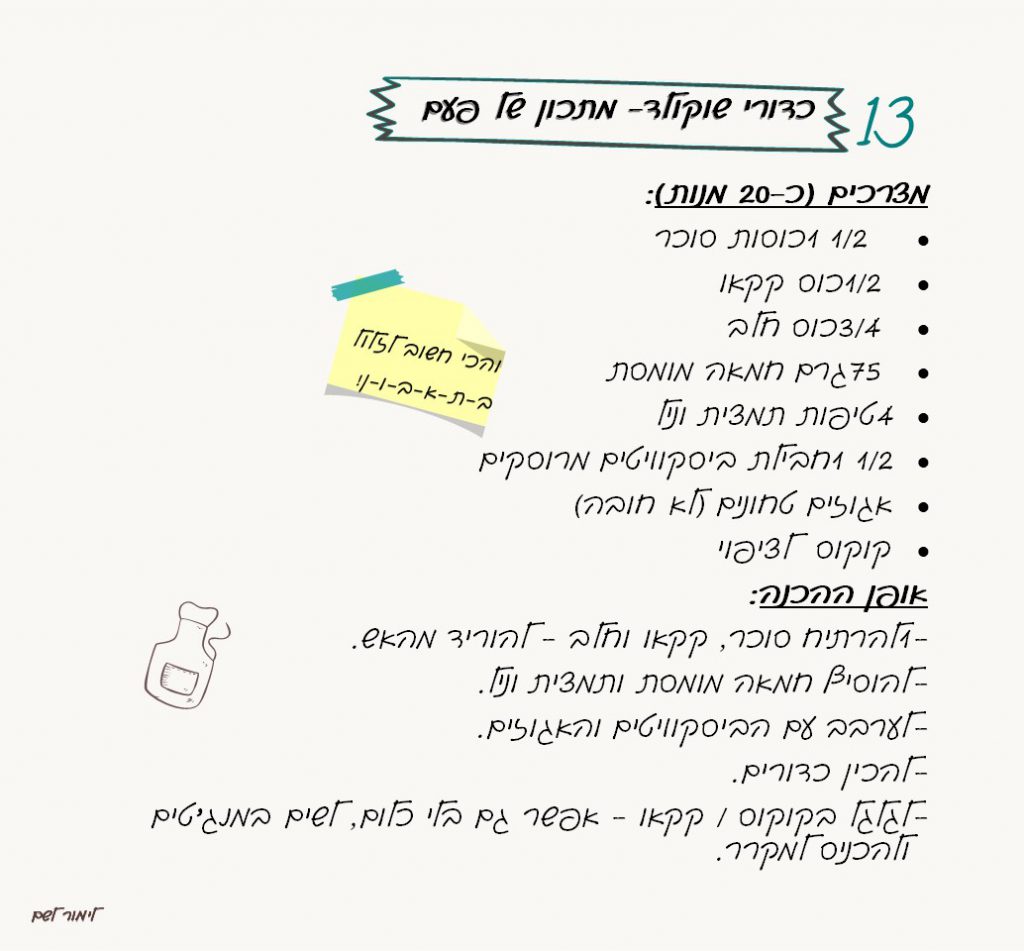 13
כדורי שוקולד- מתכון של פעם
מצרכים (כ-20 מנות):
• 1/2 1כוסות סוכר
• 1/2כוס קקאו
• 3/4כוס חלב
• 75גרם חמאה מומסת
• 4טיפות תמצית וניל
• 1/2 1חבילת ביסקוויטים מרוסקים
• אגוזים טחונים (לא חובה)
• קוקוס לציפוי
והכי חשוב לזלול
ב-ת-א-ב-ו-ן!
אופן ההכנה:
-1להרתיח סוכר, קקאו וחלב - להוריד מהאש.
-להוסיף חמאה מומסת ותמצית וניל.
-לערבב עם הביסקוויטים והאגוזים.
-להכין כדורים.
-לגלגל בקוקוס / קקאו - אפשר גם בלי כלום, לשים במנג'טים
ולהכניס למקרר.
לימור לשם